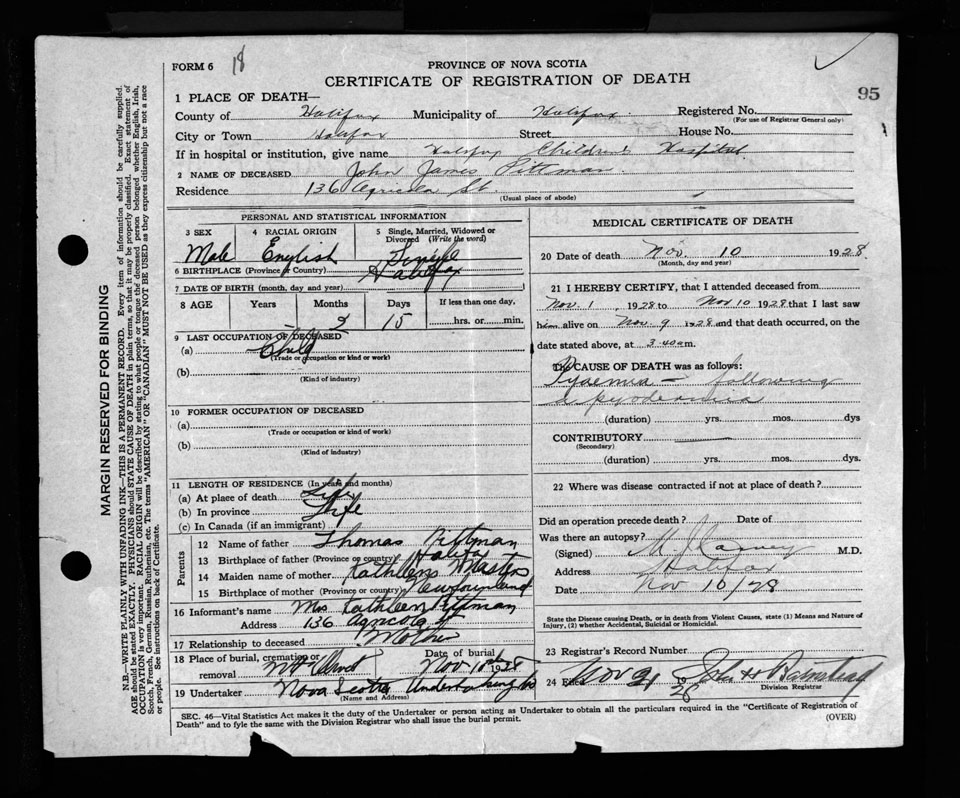 FORM 6
18
PROVINCE OF NOVA SCOTIA
CERTIFICATE OF REGISTRATION OF DEATH
95
1 PLACE OF DEATH—
County of Halifax Municipality of Halifax Registered No.
(For use of Registrar General only)
City or Town Halifax Street House No.
If in hospital or institution, give name Halifax Children's Hospital
2 NAME OF DECEASED John James Pittman
Residence 136 Agricola St.
(Usual place of abode)
PERSONAL AND STATISTICAL INFORMATION
3 SEX 4 RACIAL ORIGIN 5 Single, Married, Widowed or Divorced (Write the word)
Male English Single
6 BIRTHPLACE (Province or Country) Halifax
7 DATE OF BIRTH (month, day and year)
8 AGE Years Months Days If less than one day,
15 hrs. or min.
9 LAST OCCUPATION OF DECEASED
(a) Child
(Trade or occupation or kind of work)
(b)
(Kind of industry)
10 FORMER OCCUPATION OF DECEASED
(a)
(Trade or occupation or kind of work)
(b)
(Kind of industry)
11 LENGTH OF RESIDENCE (In years and months)
(a) At place of death Life
(b) In province Life
(c) In Canada (if an immigrant)
Parents
12 Name of father Thomas Pittman
13 Birthplace of father (Province or country) Halifax
14 Maiden name of mother Kathleen Masters
15 Birthplace of mother (Province or country) Newfoundland
16 Informant's name Mrs Kathleen Pittman
Address 136 Agricola St
17 Relationship to deceased Mother
18 Place of burial, cremation or removal Mt Olivet Date of burial Nov 10th 1928
19 Undertaker Nova Scotia Undertaking Co
(Name and Address)
MEDICAL CERTIFICATE OF DEATH
20 Date of death Nov. 10 1928
(Month, day and year)
21 I HEREBY CERTIFY, that I attended deceased from
Nov. 1 1928 to Nov 10 1928 that I last saw
him alive on Nov. 9 1928 and that death occurred, on the
date stated above, at 3.40 a.m.
The CAUSE OF DEATH was as follows:
Pyaemia — following
a pyodermia
(duration) yrs. mos. dys
CONTRIBUTORY
(Secondary)
(duration) yrs. mos. dys.
22 Where was disease contracted if not at place of death?
Did an operation precede death? Date of
Was there an autopsy?
(Signed) M.D.
Address Halifax
Date Nov 10/28
State the Disease causing Death, or in death from Violent Causes, state (1) Means and Nature of
Injury, (2) whether Accidental, Suicidal or Homicidal.
23 Registrar's Record Number
24 Filed Nov 21 28 John H
Division Registrar
SEC. 46—Vital Statistics Act makes it the duty of the Undertaker or person acting as Undertaker to obtain all the particulars required in the "Certificate of Registration of
Death" and to fyle the same with the Division Registrar who shall issue the burial permit.
(OVER)
MARGIN RESERVED FOR BINDING
N.B.—WRITE PLAINLY WITH UNFADING INK—THIS IS A PERMANENT RECORD. Every item of information should be carefully supplied.
AGE should be stated EXACTLY. PHYSICIANS should STATE CAUSE OF DEATH in plain terms, so that it may be properly classified. Exact statement of
OCCUPATION is very important. RACIAL ORIGIN will be described by stating to what people or tongue the deceased person belonged whether English, Irish,
Scotch, French, German, Russian, Ruthenian, etc. The terms "AMERICAN" OR "CANADIAN" MUST NOT BE USED as they express citizenship but not a race
or people. See instructions on back of Certificate.